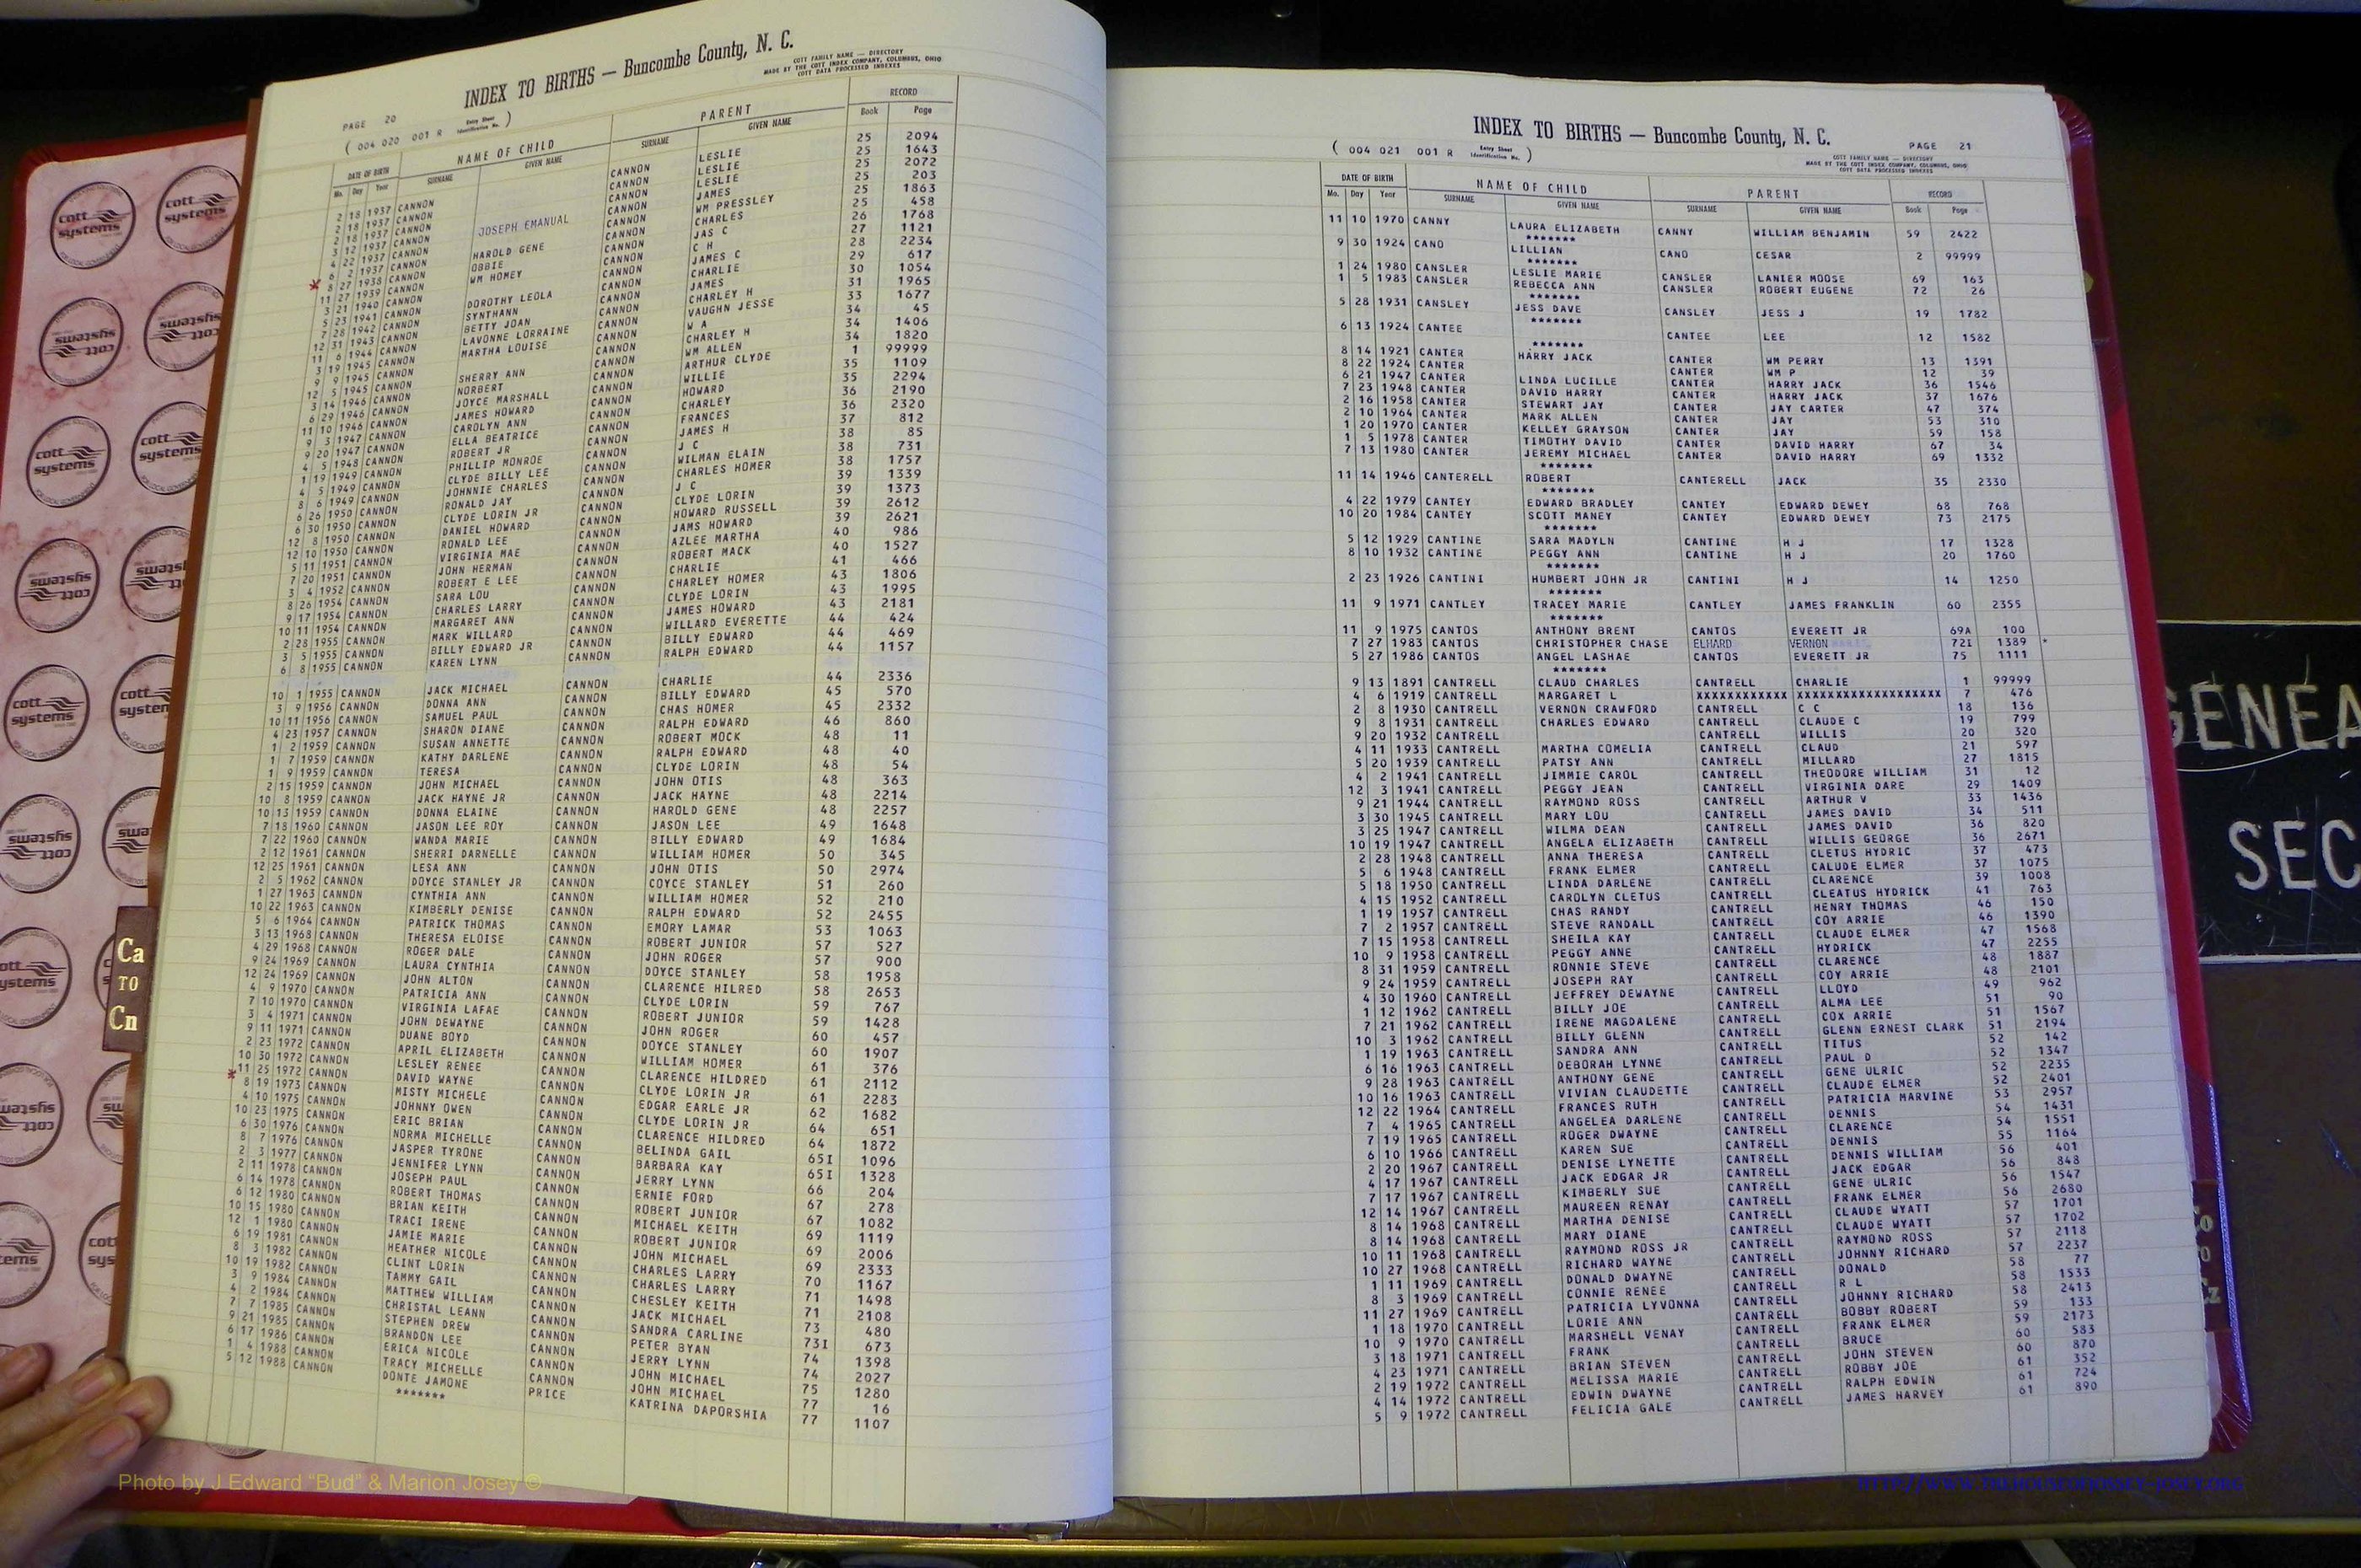 INDEX TO BIRTHS — Buncombe County, N. C.
COTT FAMILY NAME — DIRECTORY
MADE BY THE COTT INDEX COMPANY, COLUMBUS, OHIO
COTT DATA PROCESSED INDEXES
PAGE 20
( 004 020 001 R Entry Sheet Identification No. )
DATE OF BIRTH NAME OF CHILD PARENT RECORD
Mo. Day Year SURNAME GIVEN NAME SURNAME GIVEN NAME Book Page
2 18 1937 CANNON CANNON LESLIE 25 2094
2 18 1937 CANNON CANNON LESLIE 25 1643
2 18 1937 CANNON CANNON LESLIE 25 2072
3 12 1937 CANNON JOSEPH EMANUAL CANNON JAMES 25 203
4 22 1937 CANNON CANNON WM PRESSLEY 25 1863
6 2 1937 CANNON HAROLD GENE CANNON CHARLES 25 458
* 8 27 1938 CANNON OBBIE CANNON JAS C 26 1768
11 27 1939 CANNON WM HOMEY CANNON C H 27 1121
3 21 1940 CANNON CANNON JAMES C 28 2234
5 23 1941 CANNON DOROTHY LEOLA CANNON CHARLIE 29 617
7 28 1942 CANNON SYNTHANN CANNON JAMES 30 1054
12 31 1943 CANNON BETTY JOAN CANNON CHARLEY H 31 1965
11 6 1944 CANNON LAVONNE LORRAINE CANNON VAUGHN JESSE 33 1677
3 19 1945 CANNON MARTHA LOUISE CANNON W A 34 45
9 9 1945 CANNON CANNON CHARLEY H 34 1406
12 5 1945 CANNON SHERRY ANN CANNON WM ALLEN 34 1820
3 14 1946 CANNON NORBERT CANNON ARTHUR CLYDE 1 99999
6 29 1946 CANNON JOYCE MARSHALL CANNON WILLIE 35 1109
11 10 1946 CANNON JAMES HOWARD CANNON HOWARD 35 2294
9 3 1947 CANNON CAROLYN ANN CANNON CHARLEY 36 2190
9 20 1947 CANNON ELLA BEATRICE CANNON FRANCES 36 2320
4 5 1948 CANNON ROBERT JR CANNON JAMES H 37 812
1 19 1949 CANNON PHILLIP MONROE CANNON J C 38 85
4 5 1949 CANNON CLYDE BILLY LEE CANNON WILMAN ELAIN 38 731
8 6 1949 CANNON JOHNNIE CHARLES CANNON CHARLES HOMER 38 1757
6 26 1950 CANNON RONALD JAY CANNON J C 39 1339
6 30 1950 CANNON CLYDE LORIN JR CANNON CLYDE LORIN 39 1373
12 8 1950 CANNON DANIEL HOWARD CANNON HOWARD RUSSELL 39 2612
12 10 1950 CANNON RONALD LEE CANNON JAMS HOWARD 39 2621
5 11 1951 CANNON VIRGINIA MAE CANNON AZLEE MARTHA 40 986
7 20 1951 CANNON JOHN HERMAN CANNON ROBERT MACK 40 1527
3 4 1952 CANNON ROBERT E LEE CANNON CHARLIE 41 466
8 26 1954 CANNON SARA LOU CANNON CHARLEY HOMER 43 1806
9 17 1954 CANNON CHARLES LARRY CANNON CLYDE LORIN 43 1995
10 11 1954 CANNON MARGARET ANN CANNON JAMES HOWARD 43 2181
2 28 1955 CANNON MARK WILLARD CANNON WILLARD EVERETTE 44 424
3 5 1955 CANNON BILLY EDWARD JR CANNON BILLY EDWARD 44 469
6 8 1955 CANNON KAREN LYNN CANNON RALPH EDWARD 44 1157
10 1 1955 CANNON JACK MICHAEL CANNON CHARLIE 44 2336
3 9 1956 CANNON DONNA ANN CANNON BILLY EDWARD 45 570
10 11 1956 CANNON SAMUEL PAUL CANNON CHAS HOMER 45 2332
4 23 1957 CANNON SHARON DIANE CANNON RALPH EDWARD 46 860
1 2 1959 CANNON SUSAN ANNETTE CANNON ROBERT MOCK 48 11
1 7 1959 CANNON KATHY DARLENE CANNON RALPH EDWARD 48 40
1 9 1959 CANNON TERESA CANNON CLYDE LORIN 48 54
2 15 1959 CANNON JOHN MICHAEL CANNON JOHN OTIS 48 363
10 8 1959 CANNON JACK HAYNE JR CANNON JACK HAYNE 48 2214
10 13 1959 CANNON DONNA ELAINE CANNON HAROLD GENE 48 2257
7 18 1960 CANNON JASON LEE ROY CANNON JASON LEE 49 1648
7 22 1960 CANNON WANDA MARIE CANNON BILLY EDWARD 49 1684
2 12 1961 CANNON SHERRI DARNELLE CANNON WILLIAM HOMER 50 345
12 25 1961 CANNON LESA ANN CANNON JOHN OTIS 50 2974
2 5 1962 CANNON DOYCE STANLEY JR CANNON COYCE STANLEY 51 260
1 27 1963 CANNON CYNTHIA ANN CANNON WILLIAM HOMER 52 210
10 22 1963 CANNON KIMBERLY DENISE CANNON RALPH EDWARD 52 2455
5 6 1964 CANNON PATRICK THOMAS CANNON EMORY LAMAR 53 1063
3 13 1968 CANNON THERESA ELOISE CANNON ROBERT JUNIOR 57 527
4 29 1968 CANNON ROGER DALE CANNON JOHN ROGER 57 900
9 24 1969 CANNON LAURA CYNTHIA CANNON DOYCE STANLEY 58 1958
12 24 1969 CANNON JOHN ALTON CANNON CLARENCE HILRED 58 2653
4 9 1970 CANNON PATRICIA ANN CANNON CLYDE LORIN 59 767
7 10 1970 CANNON VIRGINIA LAFAE CANNON ROBERT JUNIOR 59 1428
3 4 1971 CANNON JOHN DEWAYNE CANNON JOHN ROGER 60 457
9 11 1971 CANNON DUANE BOYD CANNON DOYCE STANLEY 60 1907
2 23 1972 CANNON APRIL ELIZABETH CANNON WILLIAM HOMER 61 376
10 30 1972 CANNON LESLEY RENEE CANNON CLARENCE HILDRED 61 2112
* 11 25 1972 CANNON DAVID WAYNE CANNON CLYDE LORIN JR 61 2283
8 19 1973 CANNON MISTY MICHELE CANNON EDGAR EARLE JR 62 1682
4 10 1975 CANNON JOHNNY OWEN CANNON CLYDE LORIN JR 64 651
10 23 1975 CANNON ERIC BRIAN CANNON CLARENCE HILDRED 64 1872
6 30 1976 CANNON NORMA MICHELLE CANNON BELINDA GAIL 65I 1096
8 7 1976 CANNON JASPER TYRONE CANNON BARBARA KAY 65I 1328
2 3 1977 CANNON JENNIFER LYNN CANNON JERRY LYNN 66 204
2 11 1978 CANNON JOSEPH PAUL CANNON ERNIE FORD 67 278
6 14 1978 CANNON ROBERT THOMAS CANNON ROBERT JUNIOR 67 1082
6 12 1980 CANNON BRIAN KEITH CANNON MICHAEL KEITH 69 1119
10 15 1980 CANNON TRACI IRENE CANNON ROBERT JUNIOR 69 2006
12 1 1980 CANNON JAMIE MARIE CANNON JOHN MICHAEL 69 2333
6 19 1981 CANNON HEATHER NICOLE CANNON CHARLES LARRY 70 1167
8 3 1982 CANNON CLINT LORIN CANNON CHARLES LARRY 71 1498
10 19 1982 CANNON TAMMY GAIL CANNON CHESLEY KEITH 71 2108
3 9 1984 CANNON MATTHEW WILLIAM CANNON JACK MICHAEL 73 480
4 2 1984 CANNON CHRISTAL LEANN CANNON SANDRA CARLINE 73I 673
7 7 1985 CANNON STEPHEN DREW CANNON PETER BYAN 74 1398
9 21 1985 CANNON BRANDON LEE CANNON JERRY LYNN 74 2027
6 17 1986 CANNON ERICA NICOLE CANNON JOHN MICHAEL 75 1280
1 4 1988 CANNON TRACY MICHELLE CANNON JOHN MICHAEL 77 16
5 12 1988 CANNON DONTE JAMONE PRICE KATRINA DAPORSHIA 77 1107
*******
INDEX TO BIRTHS — Buncombe County, N. C.
PAGE 21
( 004 021 001 R Entry Sheet Identification No. )
COTT FAMILY NAME — DIRECTORY
MADE BY THE COTT INDEX COMPANY, COLUMBUS, OHIO
COTT DATA PROCESSED INDEXES
DATE OF BIRTH NAME OF CHILD PARENT RECORD
Mo. Day Year SURNAME GIVEN NAME SURNAME GIVEN NAME Book Page
11 10 1970 CANNY LAURA ELIZABETH CANNY WILLIAM BENJAMIN 59 2422
*******
9 30 1924 CANO LILLIAN CANO CESAR 2 99999
*******
1 24 1980 CANSLER LESLIE MARIE CANSLER LANIER MOOSE 69 163
1 5 1983 CANSLER REBECCA ANN CANSLER ROBERT EUGENE 72 26
*******
5 28 1931 CANSLEY JESS DAVE CANSLEY JESS J 19 1782
*******
6 13 1924 CANTEE CANTEE LEE 12 1582
*******
8 14 1921 CANTER HARRY JACK CANTER WM PERRY 13 1391
8 22 1924 CANTER CANTER WM P 12 39
6 21 1947 CANTER LINDA LUCILLE CANTER HARRY JACK 36 1546
7 23 1948 CANTER DAVID HARRY CANTER HARRY JACK 37 1676
2 16 1958 CANTER STEWART JAY CANTER JAY CARTER 47 374
2 10 1964 CANTER MARK ALLEN CANTER JAY 53 310
1 20 1970 CANTER KELLEY GRAYSON CANTER JAY 59 158
1 5 1978 CANTER TIMOTHY DAVID CANTER DAVID HARRY 67 34
7 13 1980 CANTER JEREMY MICHAEL CANTER DAVID HARRY 69 1332
*******
11 14 1946 CANTERELL ROBERT CANTERELL JACK 35 2330
*******
4 22 1979 CANTEY EDWARD BRADLEY CANTEY EDWARD DEWEY 68 768
10 20 1984 CANTEY SCOTT MANEY CANTEY EDWARD DEWEY 73 2175
*******
5 12 1929 CANTINE SARA MADYLN CANTINE H J 17 1328
8 10 1932 CANTINE PEGGY ANN CANTINE H J 20 1760
*******
2 23 1926 CANTINI HUMBERT JOHN JR CANTINI H J 14 1250
*******
11 9 1971 CANTLEY TRACEY MARIE CANTLEY JAMES FRANKLIN 60 2355
*******
11 9 1975 CANTOS ANTHONY BRENT CANTOS EVERETT JR 69A 100
7 27 1983 CANTOS CHRISTOPHER CHASE ELHARD VERNON 72I 1389 *
5 27 1986 CANTOS ANGEL LASHAE CANTOS EVERETT JR 75 1111
*******
9 13 1891 CANTRELL CLAUD CHARLES CANTRELL CHARLIE 1 99999
4 6 1919 CANTRELL MARGARET L XXXXXXXXXXXX XXXXXXXXXXXXXXXXXXX 7 476
2 8 1930 CANTRELL VERNON CRAWFORD CANTRELL C C 18 136
9 8 1931 CANTRELL CHARLES EDWARD CANTRELL CLAUDE C 19 799
9 20 1932 CANTRELL CANTRELL WILLIS 20 320
4 11 1933 CANTRELL MARTHA COMELIA CANTRELL CLAUD 21 597
5 20 1939 CANTRELL PATSY ANN CANTRELL MILLARD 27 1815
4 2 1941 CANTRELL JIMMIE CAROL CANTRELL THEODORE WILLIAM 31 12
12 3 1941 CANTRELL PEGGY JEAN CANTRELL VIRGINIA DARE 29 1409
9 21 1944 CANTRELL RAYMOND ROSS CANTRELL ARTHUR V 33 1436
3 30 1945 CANTRELL MARY LOU CANTRELL JAMES DAVID 34 511
3 25 1947 CANTRELL WILMA DEAN CANTRELL JAMES DAVID 36 820
10 19 1947 CANTRELL ANGELA ELIZABETH CANTRELL WILLIS GEORGE 36 2671
2 28 1948 CANTRELL ANNA THERESA CANTRELL CLETUS HYDRIC 37 473
5 6 1948 CANTRELL FRANK ELMER CANTRELL CALUDE ELMER 37 1075
5 18 1950 CANTRELL LINDA DARLENE CANTRELL CLARENCE 39 1008
4 15 1952 CANTRELL CAROLYN CLETUS CANTRELL CLEATUS HYDRICK 41 763
1 19 1957 CANTRELL CHAS RANDY CANTRELL HENRY THOMAS 46 150
7 2 1957 CANTRELL STEVE RANDALL CANTRELL COY ARRIE 46 1390
7 15 1958 CANTRELL SHEILA KAY CANTRELL CLAUDE ELMER 47 1568
10 9 1958 CANTRELL PEGGY ANNE CANTRELL HYDRICK 47 2255
8 31 1959 CANTRELL RONNIE STEVE CANTRELL CLARENCE 48 1887
9 24 1959 CANTRELL JOSEPH RAY CANTRELL COY ARRIE 48 2101
4 30 1960 CANTRELL JEFFREY DEWAYNE CANTRELL LLOYD 49 962
1 12 1962 CANTRELL BILLY JOE CANTRELL ALMA LEE 51 90
7 21 1962 CANTRELL IRENE MAGDALENE CANTRELL COX ARRIE 51 1567
10 3 1962 CANTRELL BILLY GLENN CANTRELL GLENN ERNEST CLARK 51 2194
1 19 1963 CANTRELL SANDRA ANN CANTRELL TITUS 52 142
6 16 1963 CANTRELL DEBORAH LYNNE CANTRELL PAUL D 52 1347
9 28 1963 CANTRELL ANTHONY GENE CANTRELL GENE ULRIC 52 2235
10 16 1963 CANTRELL VIVIAN CLAUDETTE CANTRELL CLAUDE ELMER 52 2401
12 22 1964 CANTRELL FRANCES RUTH CANTRELL PATRICIA MARVINE 53 2957
7 4 1965 CANTRELL ANGELEA DARLENE CANTRELL DENNIS 54 1431
7 19 1965 CANTRELL ROGER DWAYNE CANTRELL CLARENCE 54 1551
6 10 1966 CANTRELL KAREN SUE CANTRELL DENNIS 55 1164
2 20 1967 CANTRELL DENISE LYNETTE CANTRELL DENNIS WILLIAM 56 401
4 17 1967 CANTRELL JACK EDGAR JR CANTRELL JACK EDGAR 56 848
7 17 1967 CANTRELL KIMBERLY SUE CANTRELL GENE ULRIC 56 1547
12 14 1967 CANTRELL MAUREEN RENAY CANTRELL FRANK ELMER 56 2680
8 14 1968 CANTRELL MARTHA DENISE CANTRELL CLAUDE WYATT 57 1701
8 14 1968 CANTRELL MARY DIANE CANTRELL CLAUDE WYATT 57 1702
10 11 1968 CANTRELL RAYMOND ROSS JR CANTRELL RAYMOND ROSS 57 2118
10 27 1968 CANTRELL RICHARD WAYNE CANTRELL JOHNNY RICHARD 57 2237
1 11 1969 CANTRELL DONALD DWAYNE CANTRELL DONALD 58 77
8 3 1969 CANTRELL CONNIE RENEE CANTRELL R L 58 1533
11 27 1969 CANTRELL PATRICIA LYVONNA CANTRELL JOHNNY RICHARD 58 2413
1 18 1970 CANTRELL LORIE ANN CANTRELL BOBBY ROBERT 59 133
10 9 1970 CANTRELL MARSHELL VENAY CANTRELL FRANK ELMER 59 2173
3 18 1971 CANTRELL FRANK CANTRELL BRUCE 60 583
4 23 1971 CANTRELL BRIAN STEVEN CANTRELL JOHN STEVEN 60 870
2 19 1972 CANTRELL MELISSA MARIE CANTRELL ROBBY JOE 61 352
4 14 1972 CANTRELL EDWIN DWAYNE CANTRELL RALPH EDWIN 61 724
5 9 1972 CANTRELL FELICIA GALE CANTRELL JAMES HARVEY 61 890
Ca
TO
Cn
cott
systems
GENEA
SEC
Photo by J Edward "Bud" & Marion Josey ©
HTTP://WWW.THEHOUSEOFJOSSEY-JOSEY.ORG